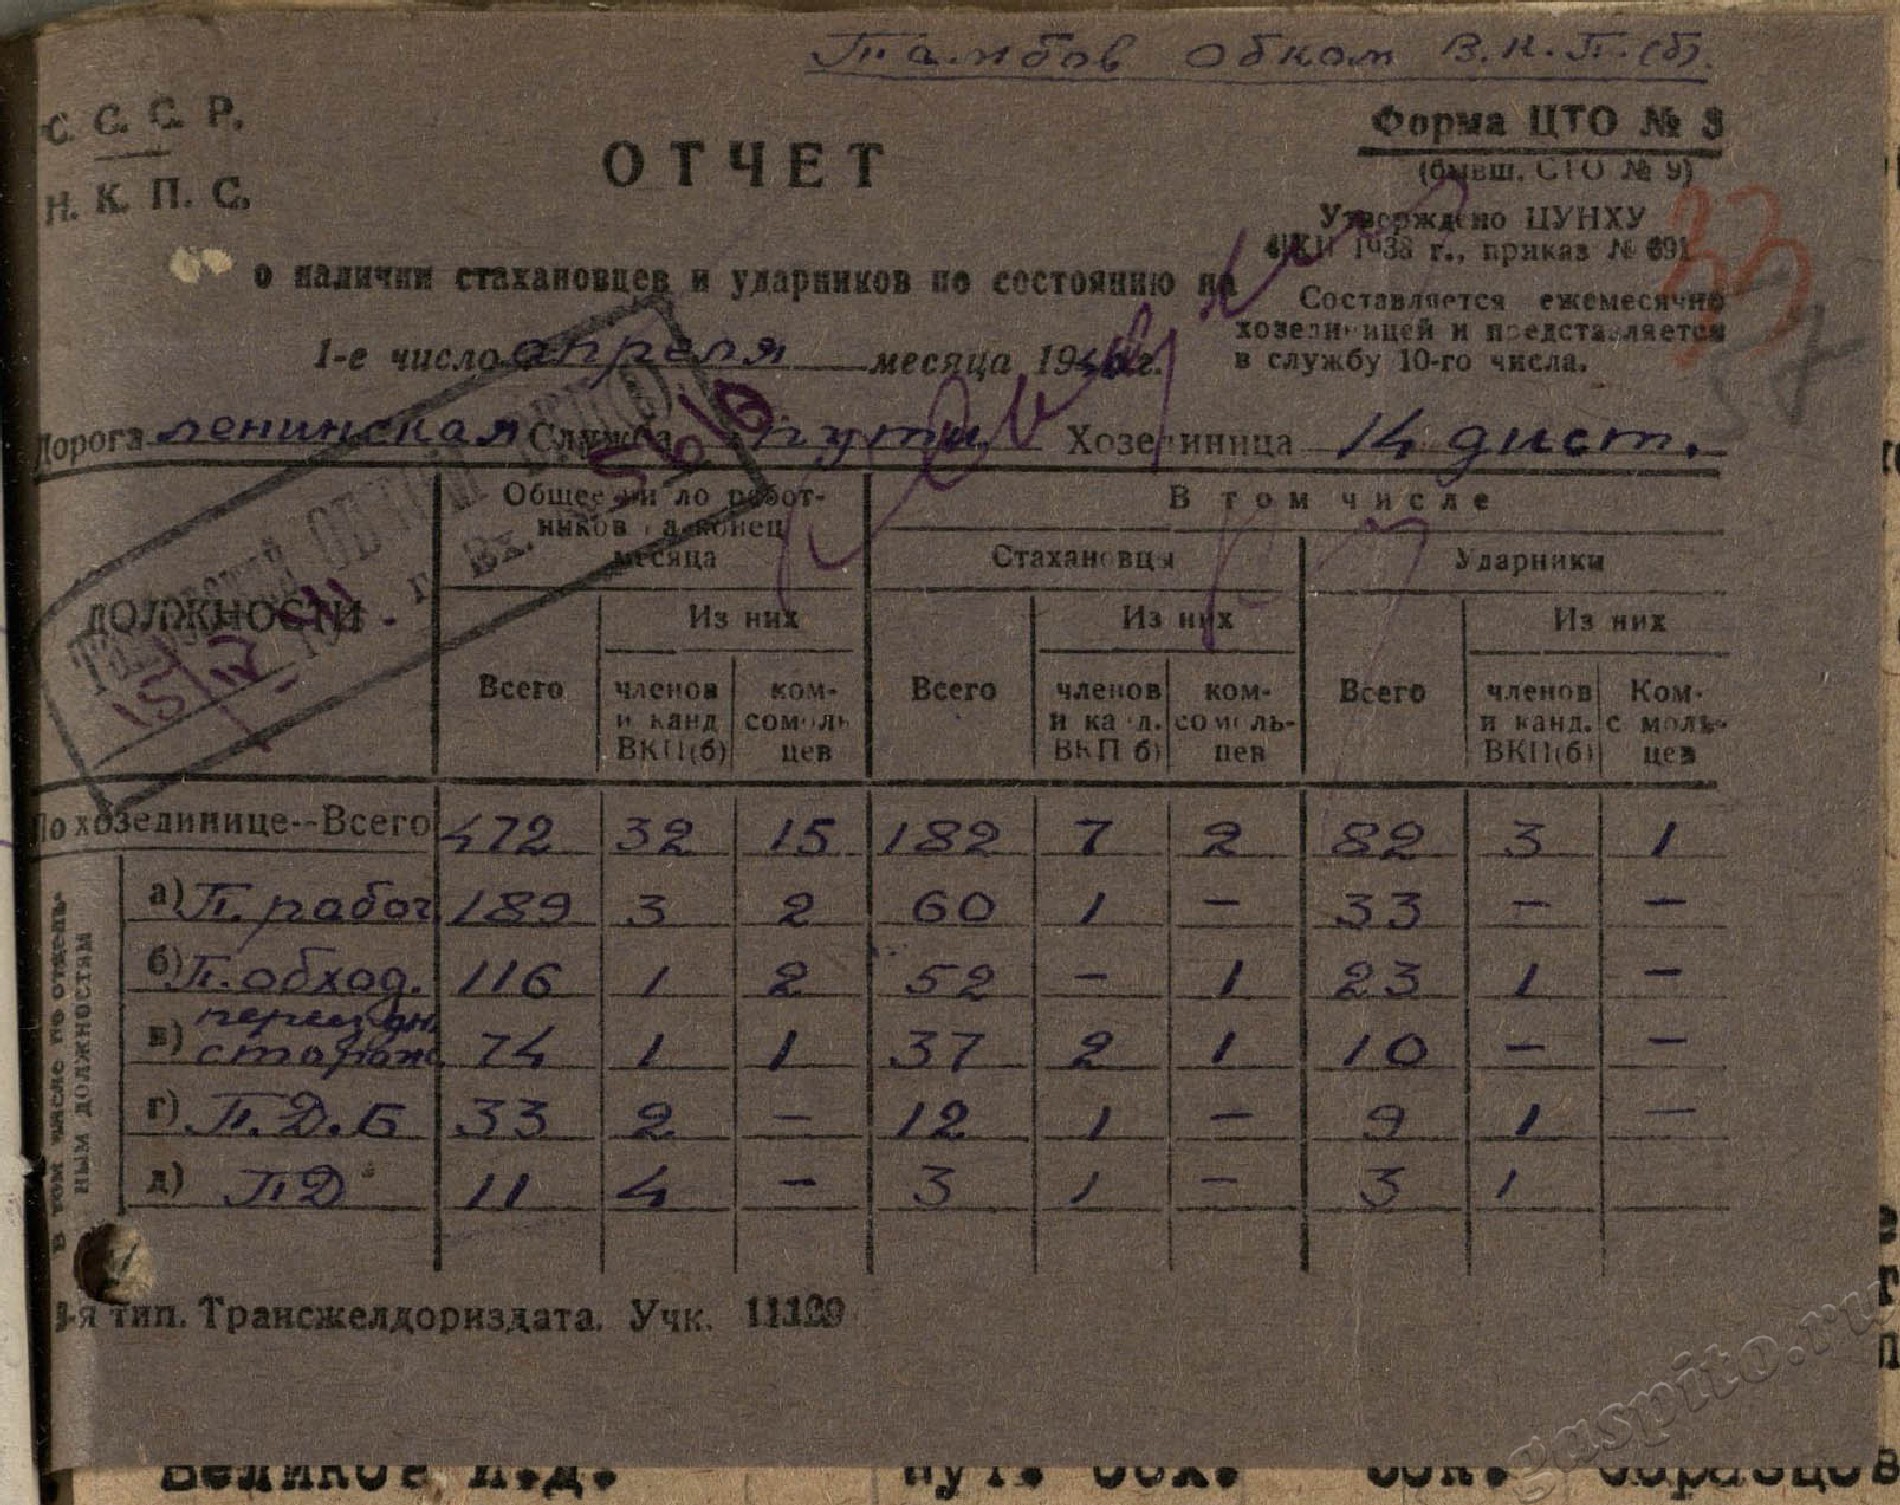 Тамбов Обком В.К.П.(б).
С. С. С. Р.
Н. К. П. С.
ОТЧЕТ
Форма ЦТО № 3
(бывш. СТО № 9)
Утверждено ЦУНХУ
XII 1938 г., приказ № 691
о наличии стахановцев и ударников по состоянию на
Составляется ежемесячно
хозединицей и представляется
в службу 10-го числа.
1-е число апреля месяца 194 г.
Дорога Ленинская Служба пути Хозединица 14 дист.
ДОЛЖНОСТИ
Общее число работ-
ников на конец
месяца
В том числе
Стахановцы Ударники
Из них Из них Из них
Всего членов и канд ВКП(б) ком-сомоль цев Всего членов и канд. ВКП(б) ком-сомоль-цев Всего членов и канд. ВКП(б) Ком-сомоль-цев
По хозединице--Всего 472 32 15 182 7 2 82 3 1
В том числе по отдель-
ным должностям
а) П. рабоч 189 3 2 60 1 – 33 – –
б) П. обход. 116 1 2 52 – 1 23 1 –
в) переездн. сторож 74 1 1 37 2 1 10 – –
г) П.Д.Б 33 2 – 12 1 – 9 1 –
д) ПД 11 4 – 3 1 – 3 1
Вх.
33
57
тип. Трансжелдориздата. Учк.
gaspito.ru